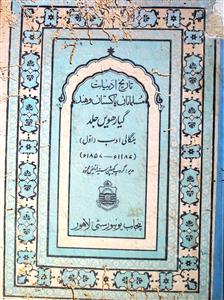 تاریخ ادبیات
مسلمانان پاکستان و ہند
گیارھویں جلد
بنگالی ادب (اول)
پنجاب یونیورسٹی لاہور